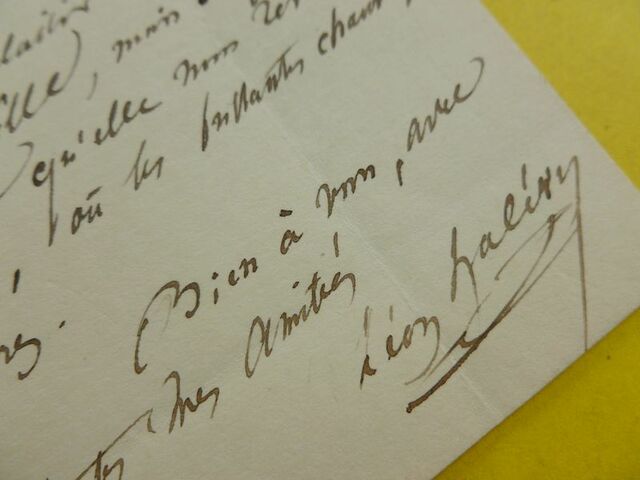 mais
qu'elle nous
où les brillantes
Bien à vous, avec
mes amitiés
Léon Halévy